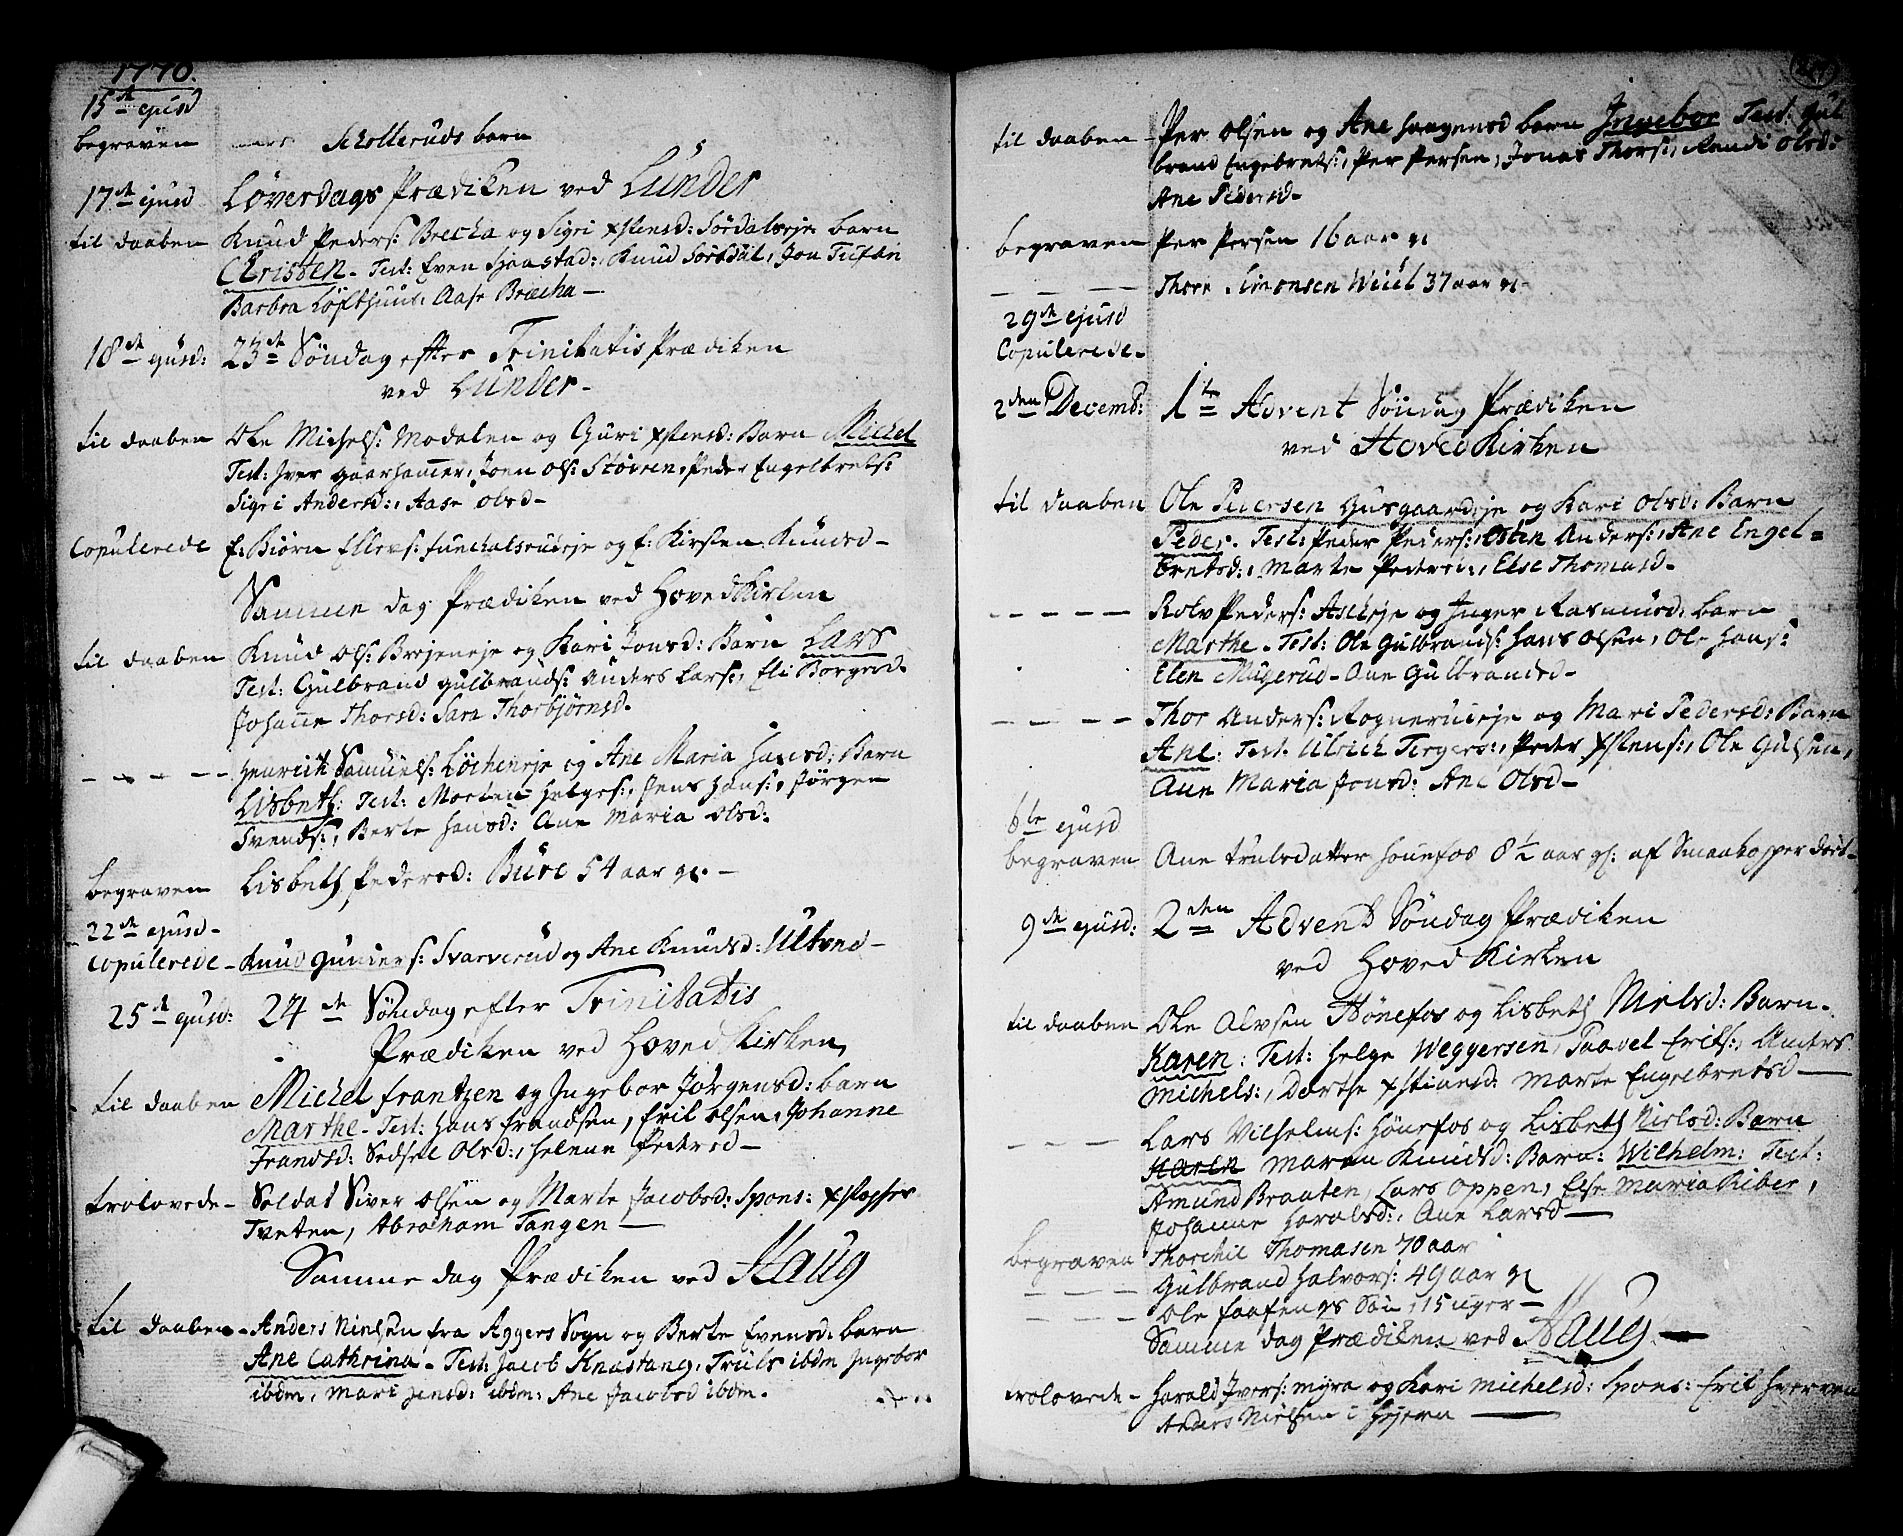 1770.
15de ejusd
begraven Schollerüds barn
17de ejusd Løverdags Prædiken ved Lünder
til daaben Knud Peders: Brecha og Sigri xstensd: Sørdalseje barn
Christen. Test: Even Sjaastad:, Knud Sørdal, Jon Tufän
Barbra Løfthuus, Aase Bræcha —
18de ejusd: 23de Søndag efter Trinitatis Prædiken
ved Lünder —
til daaben Ole Michels: Modalen og Guri xstensd: Barn Michel
Test: Iver Gaarhamer, Joen Ols: Støvren, Peder Engelbrets:
Sigri Andersd:, Aase Olsd —
Copulerede E: Biørn Ellefs: og E: Kirsten Knudsd —
Samme dag Prædiken ved HovedKirken
til daaben Knud Ols: og Kari Jonsd: Barn Lars
Test: Gulbrand Gulbrands: Anders Lars:, Eli Borgersd.
Johanne Thorsd: Sara Thorbjørnsd.
- - - - - Henrich Samuels: og Ane Maria Hansd: Barn
Lisbeth: Test: Morten Helges:, Jens Hans:, Jørgen
Svends:, Berte Hansd: Ane Maria Olsd:
begraven Lisbeth Pedersd: Büre 54 aar gl. —
22de ejusd —
Copulerede — Knud Gunders: Svarverud og Ane Knudsd: Ultved —
25de ejusd: 24de Søndag efter Trinitatis
Prædiken ved HovedKirken,
til daaben Michel Frantzen og Ingebor Jørgensd: barn
Marthe — Test: Hans Frandsen, Erik Olsen, Johanne
Frandsd: Sedsel Olsd:, Helene Pedersd —
trolovede — Soldat Siver Olsen og Marte Jacobsd: Spons: xstopher
Tveten, Abraham Tangen —
Samme dag Prædiken ved Haug
til daaben — Anders Nielsen fra Aggers Sogn og Berte Evensd: barn
Ane Cathrina — Test: Jacob Knastang, Truls ibdm Ingebor
ibdm, Mari Jensd: ibdm: Ane Jacobsd ibdm.
til daaben — Per Olsen og Ane Haagensd barn Ingebor Test: Gul
brand Engebrets:, Per Persen, Jonas Thors:, Randi Olsd:
Ane Pedersd —
begraven Per Persen 16 aar gl
— — — Thore Simonsen Weiül 37 aar gl —
29de ejusd
Copulerede —
2den Decemb: 1te Advent Søndag Prædiken
ved HovedKirken
til daaben Ole Pedersen Gusgaardeje og Kari Olsd: Barn
Peder. Test: Peder Peders:, Østen Anders:, Ane Engel=
bretsd:, Marte Pedersd:, Else Thomasd —
— — — — — Rolv Peders: Askeje og Inger Rasmusd: barn
Marthe. Test: Ole Gulbrands: Hans Olsen, Ole Hans:
Elen Mügerud — Ane Gulbrandsd —
— — — — Thor Anders: Rognerudeje og Mari Pedersd: Barn
Ane: Test: Ulrich Tergers:, Peder xstens:, Ole Gulsen,
Ane Maria Jonsd: Ane Olsd —
6te ejusd
begraven Ane Trulsdatter Hønefos 8½ aar gl: af Smaakopper død —
9de ejusd: 2den Advent Søndag Prædiken
ved HovedKirken
til daaben Ole Alvsen Hønefos og Lisbeth Nielsd: Barn —
Karen: Test: Helge Weggersen, Paavel Eriks:, Anders
Michels:, Dorthe xstiansd: Marte Engelbretsd —
— — — Lars Vilhelms: Hønefos og Lisbeth Nielsd: Barn
Karen Maren Knudsd: Barn: Wilhelm: Test:
Amund Braaten, Lars Oppen, Else Maria Riber,
Johanne Haralsd:, Ane Larsd —
begraven Thorchil Thomasen 70 aar
— — — Gulbrand Halvors: 49 aar gl
— — — Ole Søn, 15 uger —
Samme dag Prædiken ved Haug. —
trolovede — Harald Ivers: Myra og Kari Michelsd: Spons: Erik Hverven
Anders Nielsen i Hejern —